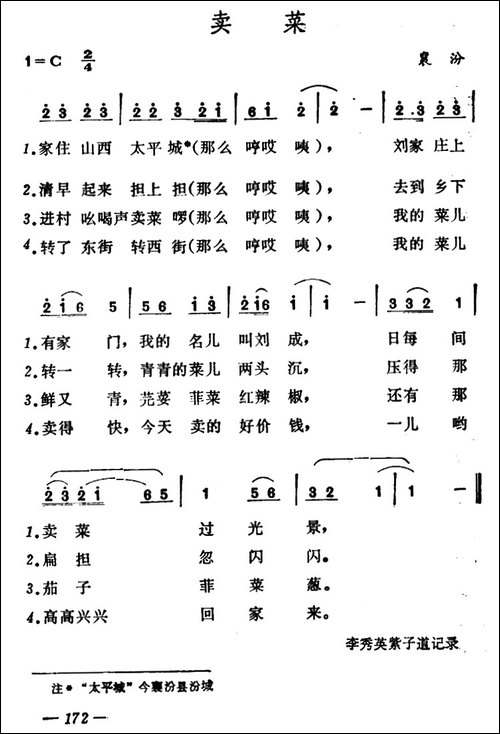 卖菜
1=C 2/4 襄汾
2̇3̇ 2̇3̇ | 2̇2̇ 3̇ 2̇1̇ | 6 1̇ 2̇ | 2̇ — | 2̇·3̇ 2̇3̇ |
1.家住 山西 太平 城*(那么 哼哎 咦), 刘家 庄上
2.清早 起来 担上 担(那么 哼哎 咦), 去到 乡下
3.进村 吆喝声 卖菜 啰(那么 哼哎 咦), 我的 菜儿
4.转了 东街 转西 街(那么 哼哎 咦), 我的 菜儿
2̇1̇6 5 | 5 6 1̇3̇ | 2̇1̇6 1̇ | 1̇ — | 332 1 |
1.有家 门,我的 名儿 叫刘 成, 日每 间
2.转一 转,青青的 菜儿 两头 沉, 压得 那
3.鲜又 青,芫荽 韭菜 红辣 椒, 还有 那
4.卖得 快,今天 卖的 好价 钱, 一儿 哟
2̇3̇2̇1̇ 65 | 1 56 | 32 1 | 1 — ‖
1.卖菜 过光 景,
2.扁担 忽闪 闪。
3.茄子 韭菜 葱。
4.高高兴兴 回家 来。
李秀英紫子道记录
注*“太平城”今襄汾县汾城
— 172 —